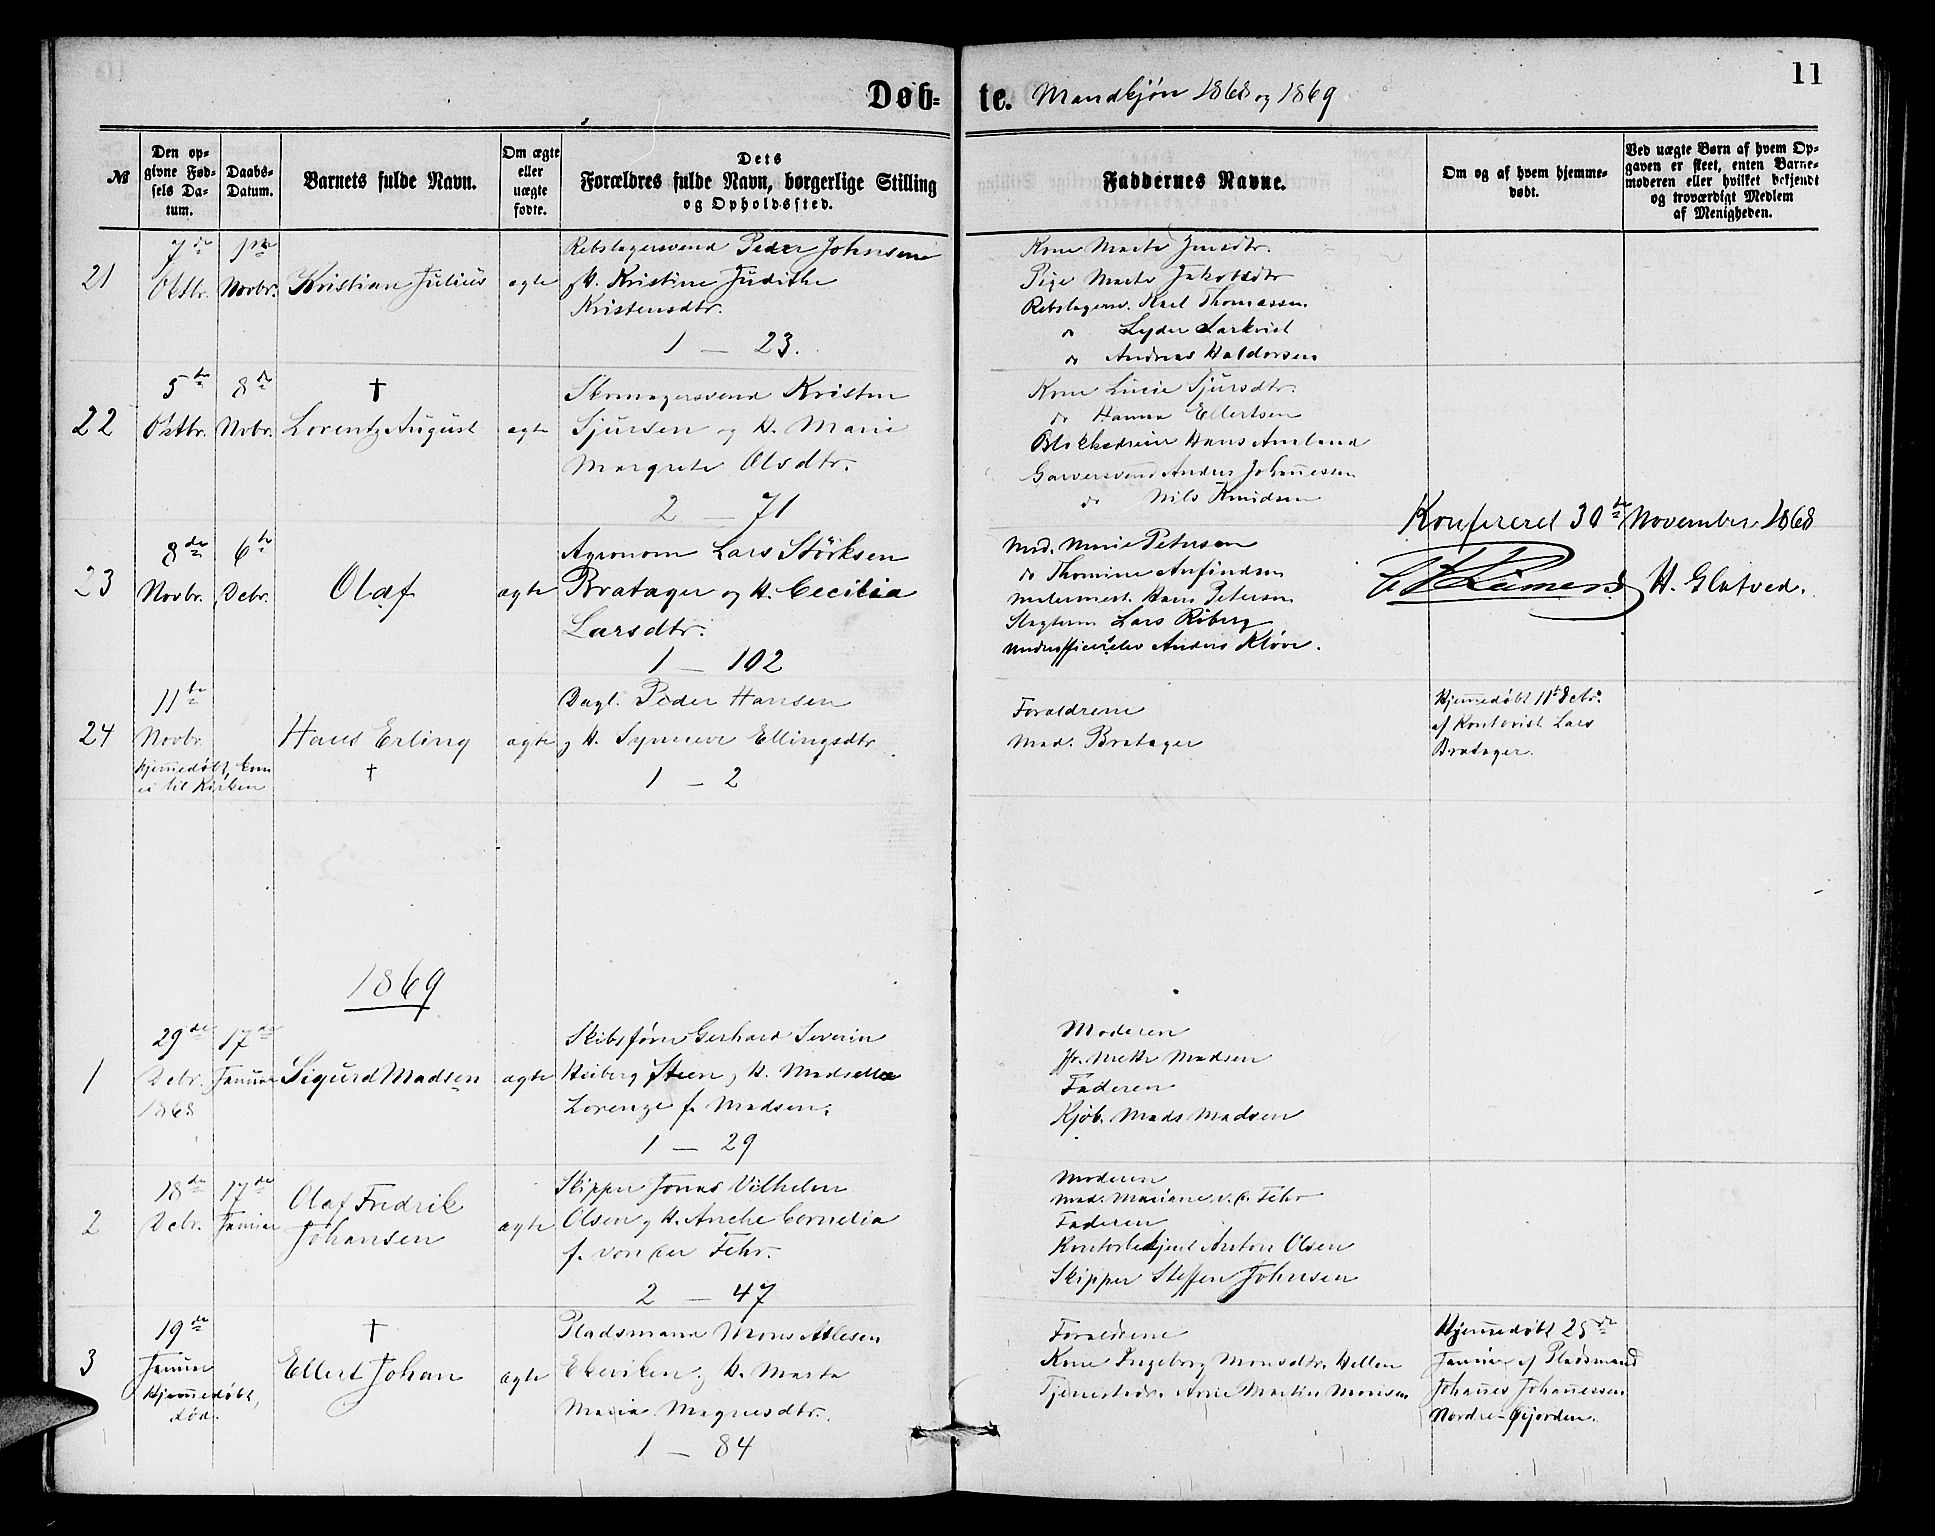 11
Døb-te. Mandkjøn 1868 og 1869
№
Den opgivne Fødsels Datum.
Daabs-Datum.
Barnets fulde Navn.
Om ægte eller uægte fødte.
Dets Forældres fulde Navn, borgerlige Stilling og Opholdssted.
Faddernes Navne.
Om og af hvem hjemmedøbt.
Ved uægte Børn af hvem Opgaven er skeet, enten Barnemoderen eller hvilket bekjendt og troværdigt Medlem af Menigheden.
21
7de Oktbr.
1ste Novbr.
Kristian Julius
ægte
Rebslagersvend Peder Johnsen
og H. Kristine Judithe
Kristensdtr.
1 — 23.
Kone Marta
Pige Marta Jakobsdtr
Rebslagersv. Karl Thomassen
do Lyder
do Andreas Haldorsen
22
5te Oktbr.
8de Novbr.
†
Lorentz August
ægte
Skomagersvend Kristen
Sjursen og H. Marie
Margrete Olsdtr.
2 — 71
Kone Lucie Sjursdtr.
do Hanna Ellertsen
Hans Amland
Garversvend Anders Johannessen
do Nils Knudsen
Konfereret 30te November 1868
H. Glatved.
23
8de Novbr.
6te Debr.
Olaf
ægte
Agronom Lars Störksen
Bratager og H. Cecilia
Larsdtr.
1 — 102
Mad. Marie Petersen
do Thomine Anfindsen
Malermest. Hans Petersen
Lars Riberg
Underofficerselev Anders Kløve.
24
11te Novbr.
Hjemmedøbt, kom
ei til Kirken
Hans Erling
†
ægte
Dagl. Peder Hansen
og H. Synneve Ellingsdtr
1 — 2
Forældrene
Mad. Bratager
Hjemmedøbt 11te Debr.
af Kontorist Lars
Bratager.
1869
1
29de Debr. 1868
17de Januar
Sigurd Madsen
ægte
Skibsfører Gerhard Severin
Heiberg Steen og H. Madsella
Lorenze f. Madsen.
1 — 29
Moderen
Madsen
Faderen
Kjøb. Mads Madsen
2
18de Debr.
17de Januar
Olaf Fredrik
Johansen
ægte
Skipper Jonas Vilhelm
Olsen og H. Anche Cornelia
f. von der Fehr.
2 — 47
Moderen
Mad. Mariane v. d. Fehr
Faderen
Kontorbetjent Anton Olsen
Skipper Steffen Johnsen
3
19de Januar
Hjemmedøbt,
død.
†
Ellert Johan
ægte
Pladsmand Mons Atlesen
Ekeviken og H. Marta
Maria Magnesdtr.
1 — 84
Forældrene
Kone Ingeborg Monsdtr. Hellen
Tjenestedr. Arne Martin Monsen
Hjemmedøbt 25de
Januar af Pladsmand
Johannes Johannessen
Nordre-Gjorden.